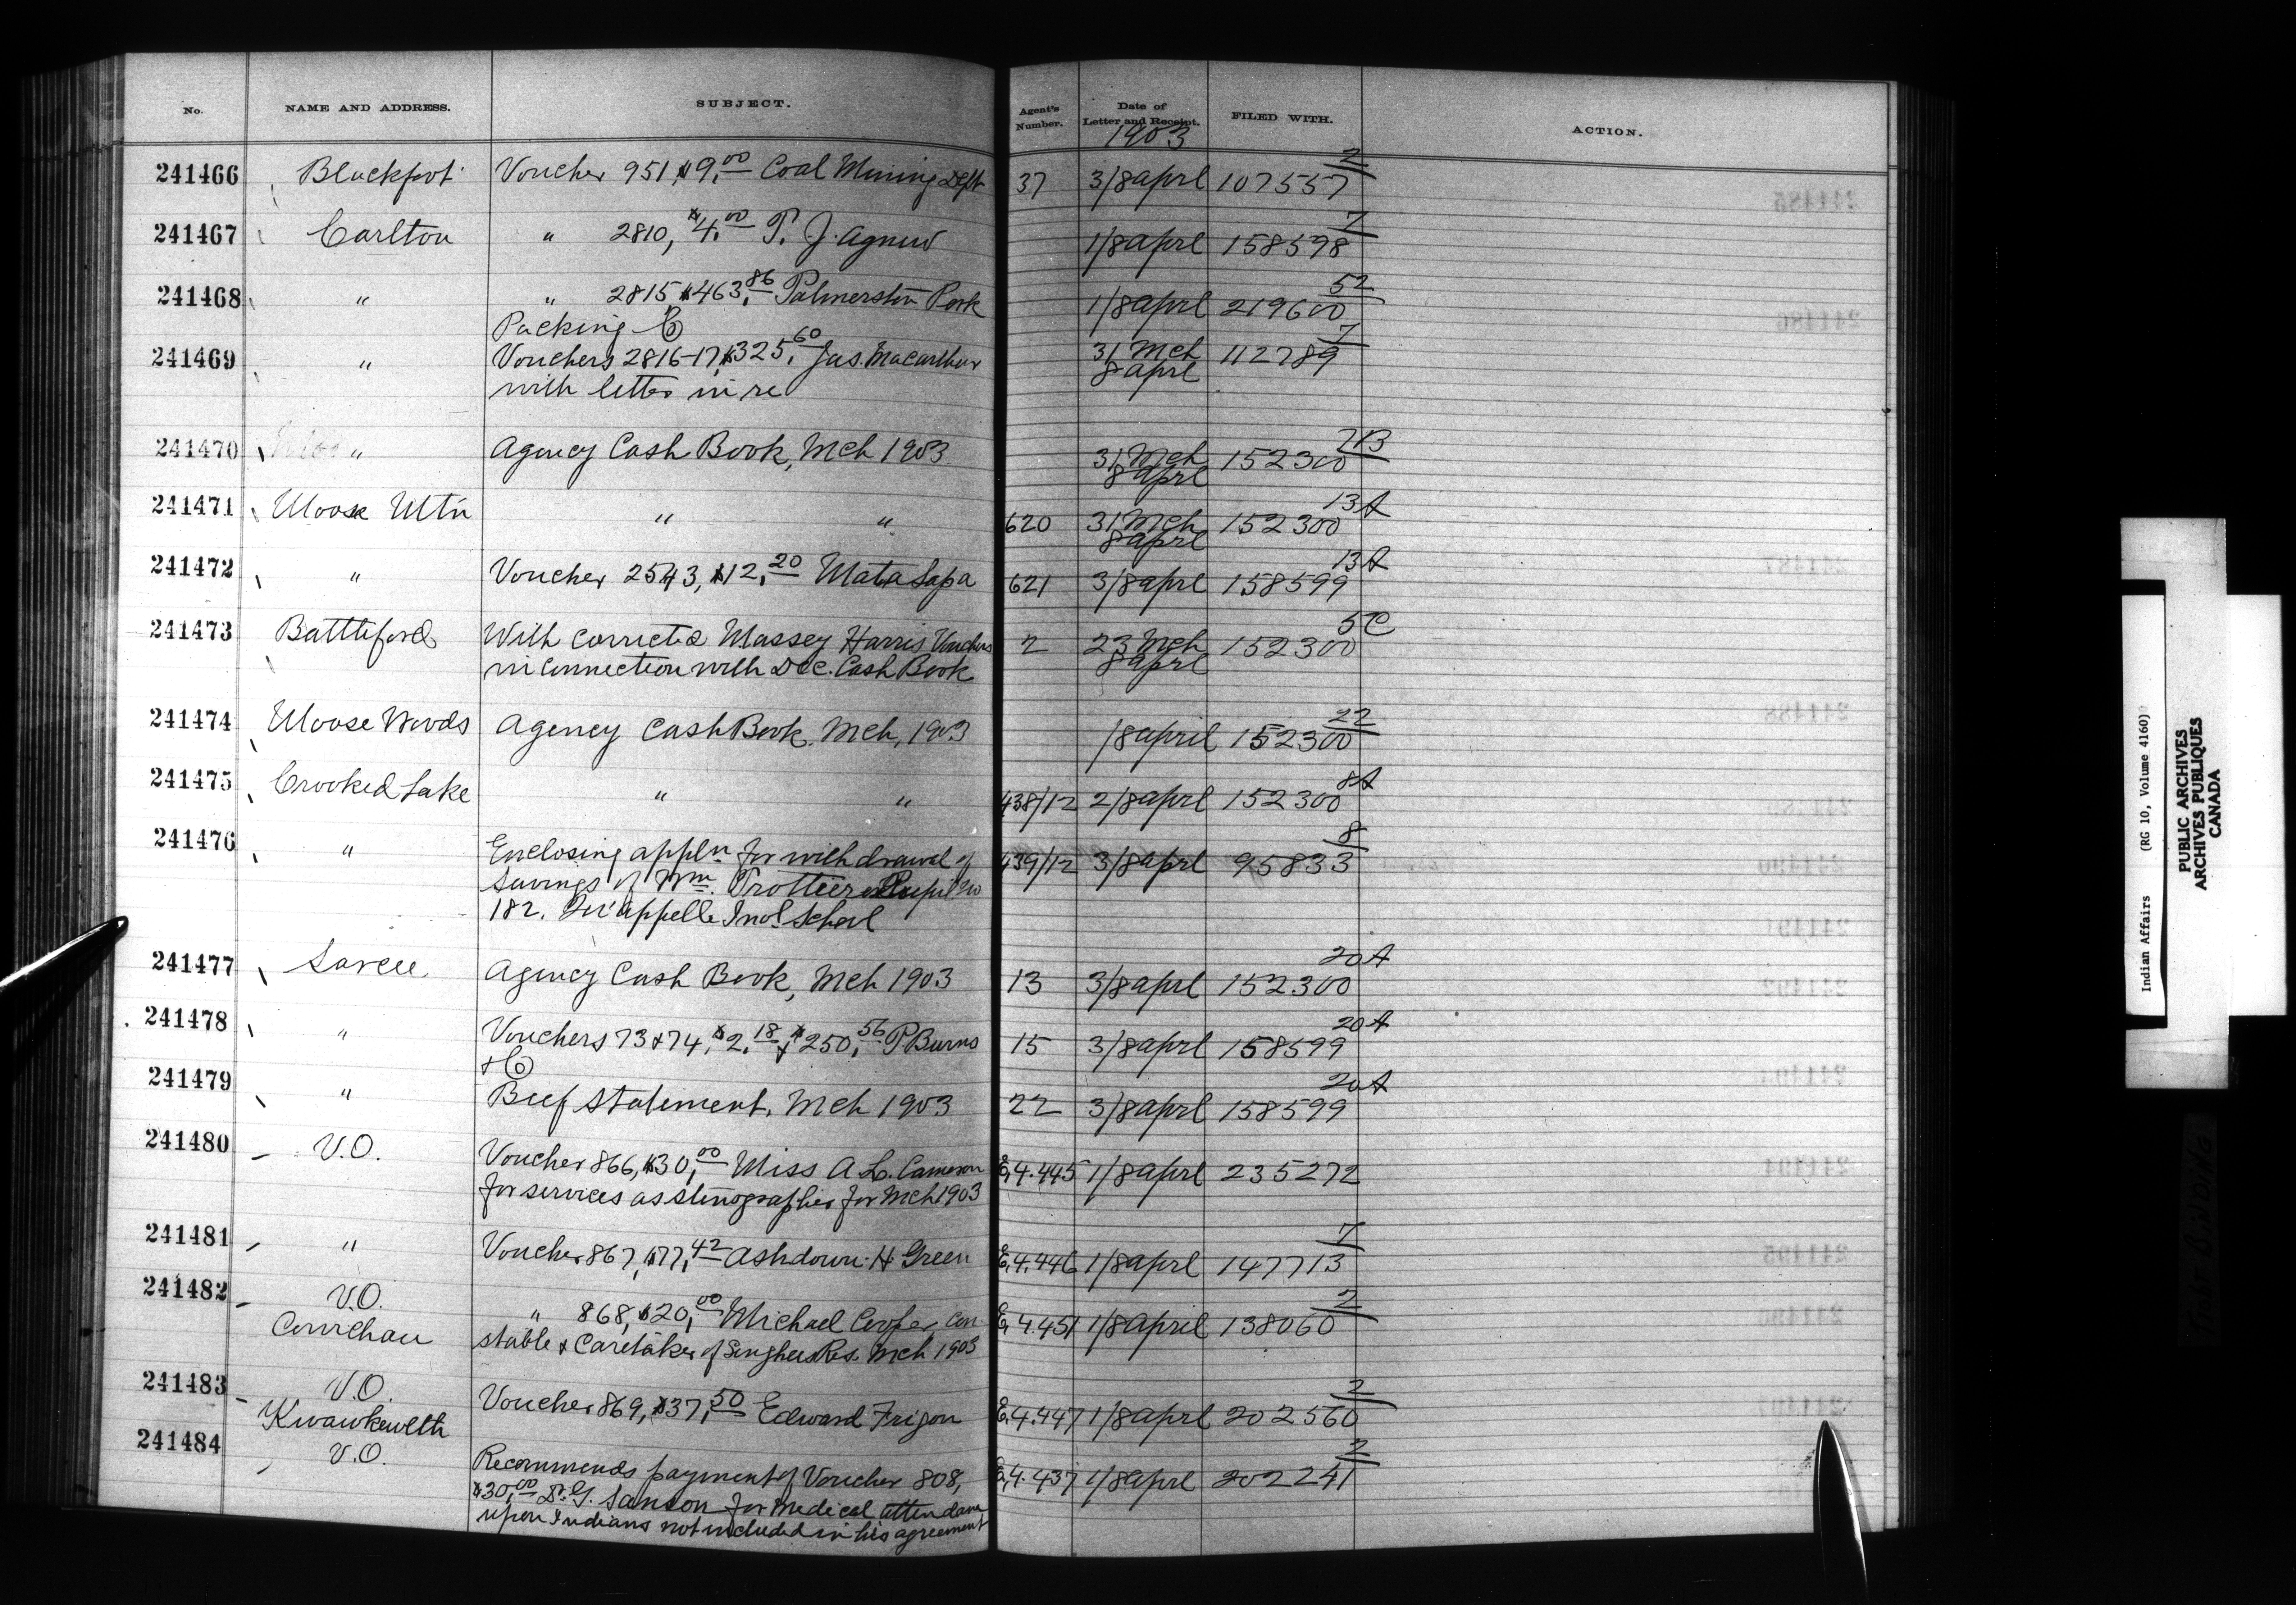 No. NAME AND ADDRESS. SUBJECT. Agent's Number. Date of Letter and Receipt. FILED WITH. ACTION.
1903
241466 Blackfoot Voucher 951, $9.00 Coal Mining Dept 37 3/8 aprl 107557 2
241467 Carlton " 2810, $4.00 P. J. Agnew 1/8 aprl 158598 7
241468 " " 2815 $463.86 Palmerston Pork 1/8 aprl 219600 52
Packing Co
241469 " Vouchers 2816-17, $325.60 Jas. Macarthur 31 Mch 112789 7
with letter in re 8 aprl
241470 " Agency Cash Book, Mch 1903 31 Mch 152300 21B
8 aprl
241471 Moose Mtn " " 620 31 Mch 152300 13A
8 aprl
241472 " Voucher 2543, $12.20 Mata Sapa 621 3/8 aprl 158599 13A
241473 Battleford With corrected Massey Harris Vouchers 2 23 Mch 152300 5C
in connection with Dec. Cash Book 8 aprl
241474 Moose Woods Agency Cash Book. Mch, 1903 /8 april 152300 22
241475 Crooked Lake " " 438/12 2/8 aprl 152300 8A
241476 " Enclosing appln for withdrawal of 439/12 3/8 aprl 95833 8
Savings of Wm. Trottier Pupil No
182. Qu'appelle Indl. School
241477 Sarcee Agency Cash Book, Mch 1903 13 3/8 aprl 152300 20A
241478 " Vouchers 73 & 74, $2.18 & $250.56 P Burns 15 3/8 aprl 158599 20A
& Co
241479 " Beef Statement, Mch 1903 22 3/8 aprl 158599 20A
241480 V.O. Voucher 866, $30.00 Miss A. L. Cameron 4.445 1/8 aprl 235272
for services as stenographer for Mch 1903
241481 " Voucher 867, $77.42 Ashdown H. Green 4.446 1/8 aprl 147713 7
241482 V.O. " 868, $20.00 Michael Cooper Con 4.451 1/8 april 138060 2
Cowichan stable & Caretaker of Songhees Res. Mch 1903
241483 V.O. Voucher 869, $37.50 Edward Frigon 4.447 1/8 aprl 202560 2
Kwawkewlth
241484 V.O. Recommends payment of Voucher 808, 4.437 1/8 aprl 202241 2
$30.00 Dr. G. Sanson for Medical attendance
upon Indians not included in his agreement
Indian Affairs (RG 10, Volume 4160)
PUBLIC ARCHIVES
ARCHIVES PUBLIQUES
CANADA